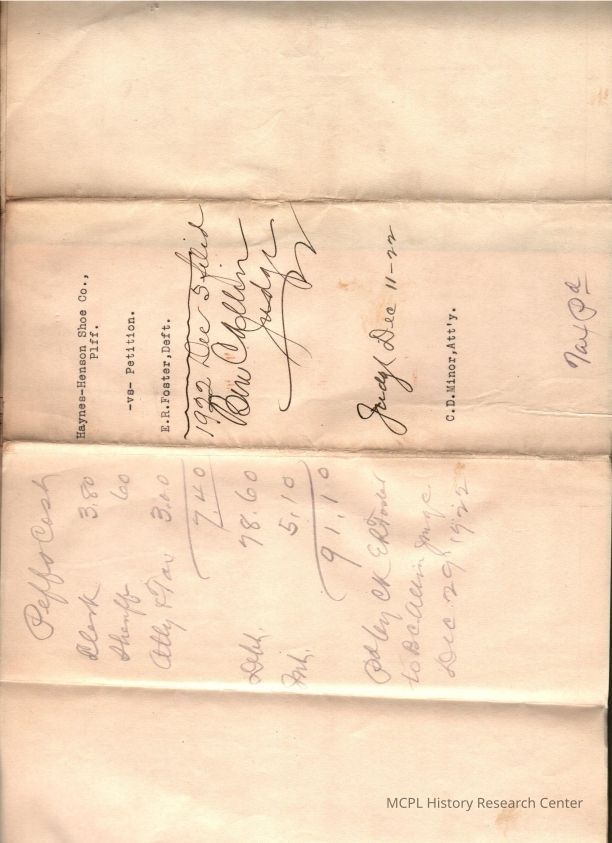 Haynes-Henson Shoe Co.,
Plff.
-vs- Petition.
E.R.Foster,Deft.
1922 Dec 5 filed
Ben C Allin
Judge
Judgt Dec 11-22
C.D.Minor,Att'y.
Tax Pd
Peffs Cost
Clerk 3.80
Sheriff 60
Atty & Tax 3.00
7.40
Debt. 78.60
Int. 5.10
91.10
Pd by CK ER Foster
to BC Allin Judge
Dec 29, 1922
MCPL History Research Center